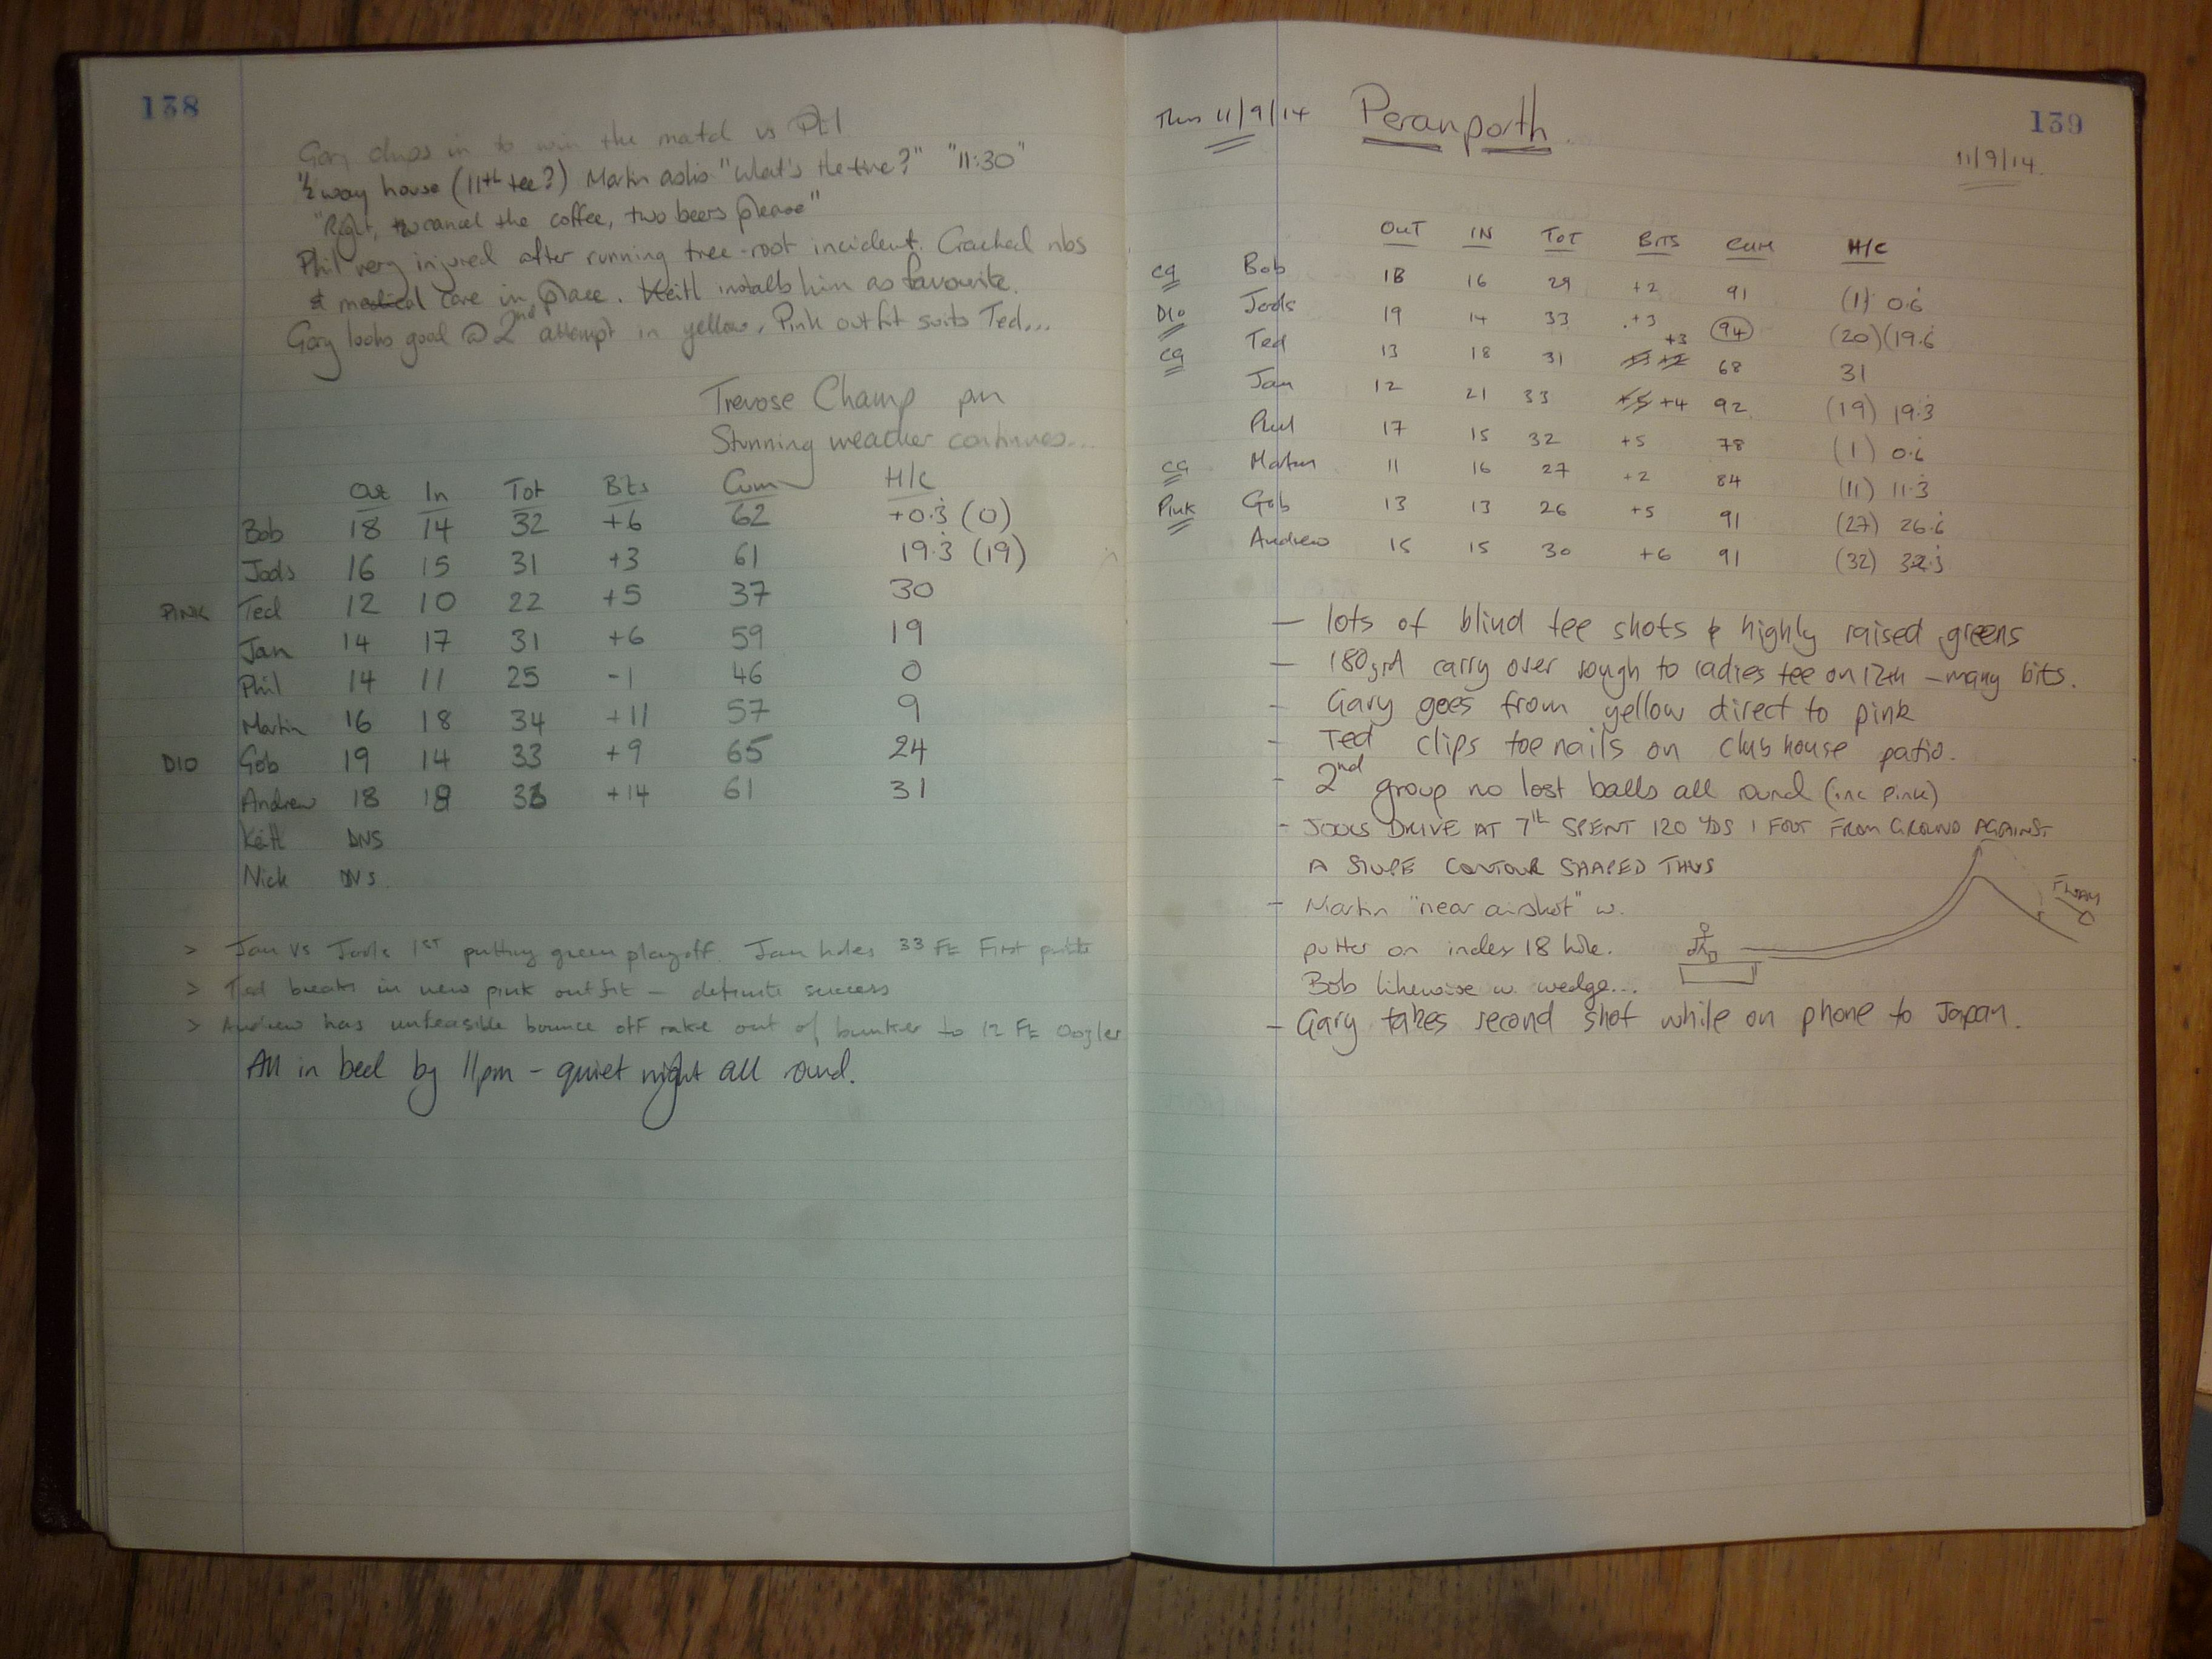 138
Gary chips in to win the match vs Phil
½ way house (11th tee?) Martin asks "What's the time?" "11:30"
"Right, cancel the coffee, two beers please"
Phil very injured after running tree-root incident. Cracked ribs
& medical care in place. Keith installs him as favourite.
Gary looks good @ 2nd attempt in yellow. Pink outfit suits Ted...
Trevose Champ pm
Stunning weather continues...
Out In Tot Bits Cum H/C
Bob 18 14 32 +6 62 +0.3 (0)
Jools 16 15 31 +3 61 19.3 (19)
PINK Ted 12 10 22 +5 37 30
Jan 14 17 31 +6 59 19
Phil 14 11 25 -1 46 0
Martin 16 18 34 +11 57 9
DIO Gob 19 14 33 +9 65 24
Andrew 18 18 36 +14 61 31
Keith DNS
Nick DNS
> Jan vs Jools 1ST putting green playoff. Jan holes 33 Ft First putt
> Ted breaks in new pink outfit - definite success
> Andrew has unfeasible bounce off rake out of bunker to 12 Ft
All in bed by 11pm - quiet night all round.
139
Thurs 11/9/14 Peranporth.
11/9/14.
OUT IN TOT BITS CUM H/C
CG Bob 18 16 29 +2 91 (1) 0.6
DIO Jools 19 14 33 +3 94 (20) (19.6
CG Ted 13 18 31 +3 68 31
Jan 12 21 33 +4 92 (19) 19.3
Phil 17 15 32 +5 78 (1) 0.6
CG Martin 11 16 27 +2 84 (11) 11.3
Pink Gob 13 13 26 +5 91 (27) 26.6
Andrew 15 15 30 +6 91 (32) 32.3
- lots of blind tee shots & highly raised greens
- 180yd carry over rough to ladies tee on 12th - many bits.
- Gary goes from yellow direct to pink
- Ted clips toe nails on club house patio.
- 2nd group no lost balls all round (inc Pink)
- JOOLS DRIVE AT 7th SPENT 120 YDS 1 FOOT FROM GROUND AGAINST
A SLOPE CONTOUR SHAPED THUS
- Martin "near airshot" w.
putter on index 18 hole.
Bob likewise w. wedge...
- Gary takes second shot while on phone to Japan.